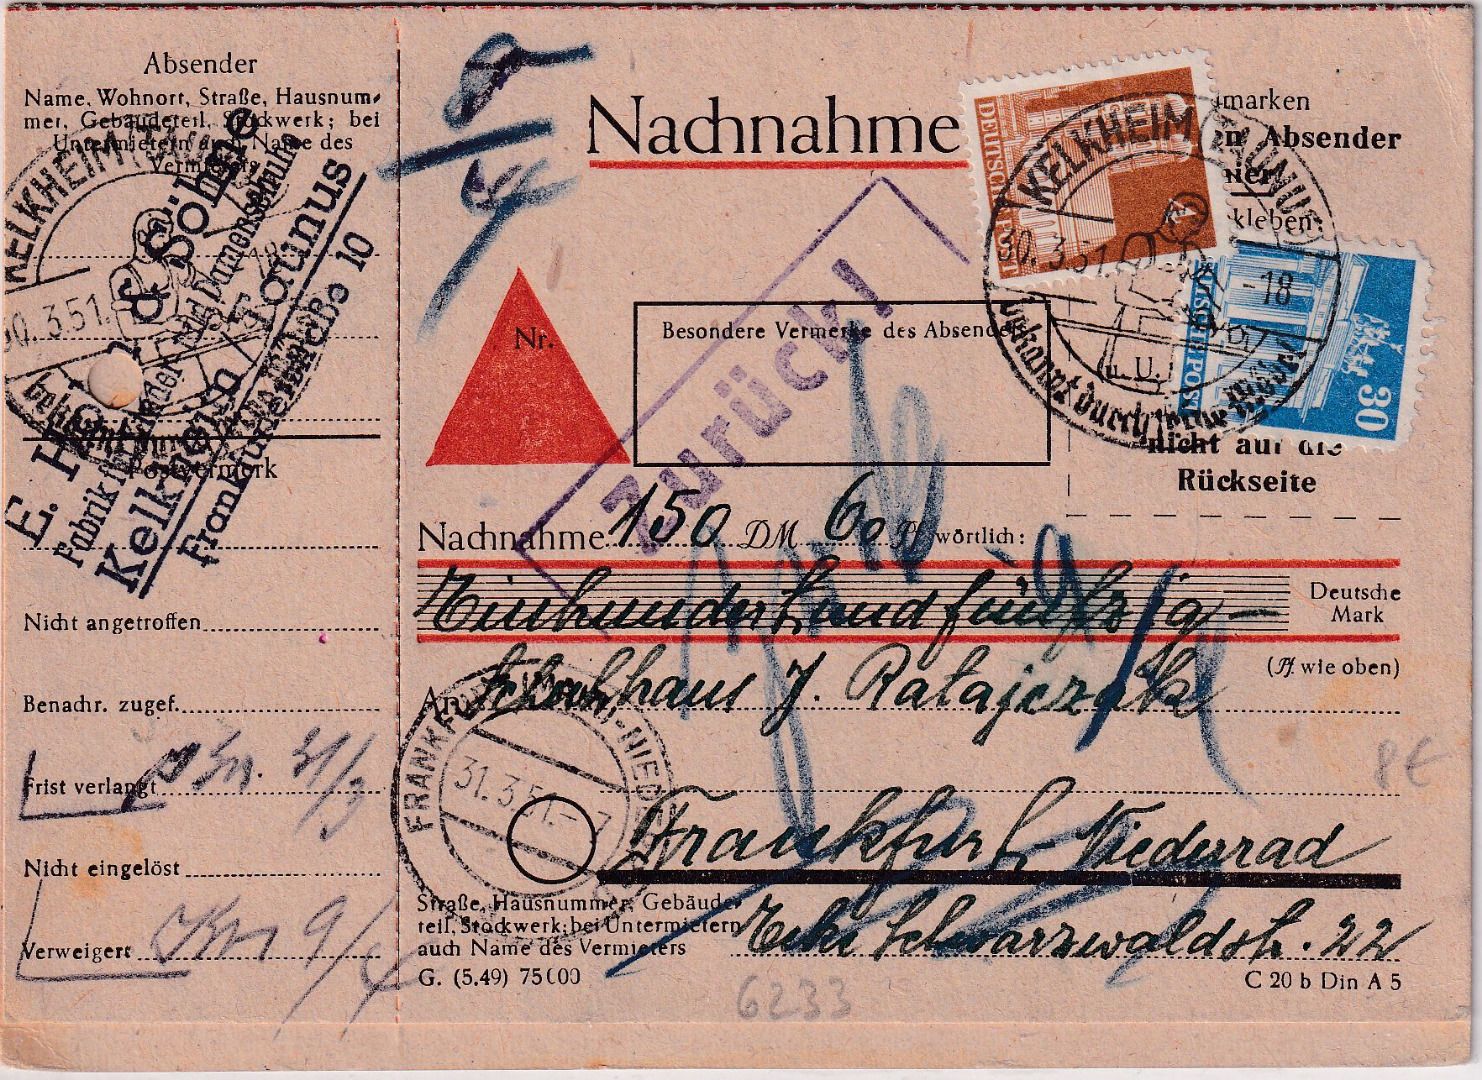 Absender
Name, Wohnort, Straße, Hausnum-
mer, Gebäudeteil, Stockwerk; bei
Untermietern auch Name des
Vermieters
KELKHEIM (TAUNUS)
30.3.51.
E. H & Söhne
Fabrik für Kinder- und Damenschuhe
Kelkheim Taunus
Frankfurterstraße 10
Postvermerk
Nicht angetroffen
Benachr. zugef.
Frist verlangt 31/3
Nicht eingelöst
Verweigert 9/4
Nachnahme
marken
en Absender
kleben
nicht auf die
Rückseite
DEUTSCHE POST
4
DEUTSCHE POST
30
KELKHEIM (TAUNUS)
30.3.51. -18
u. U.
bekannt durch seine Möbel
Nr.
Besondere Vermerke des Absenders
Zurück!
Nachnahme 150 DM 60 Pf wörtlich:
Einhundertundfünfzig —
Deutsche
Mark
(Pf wie oben)
An Schuhhaus J. Ratajczak
FRANKFURT (MAIN)-NIEDERRAD
31.3.51.- 7
Frankfurt Niederrad
Straße, Hausnummer, Gebäude-
teil, Stockwerk; bei Untermietern
auch Name des Vermieters
Ecke Schwarzwaldstr. 22
G. (5.49) 75000
C 20 b Din A 5
8€
6233